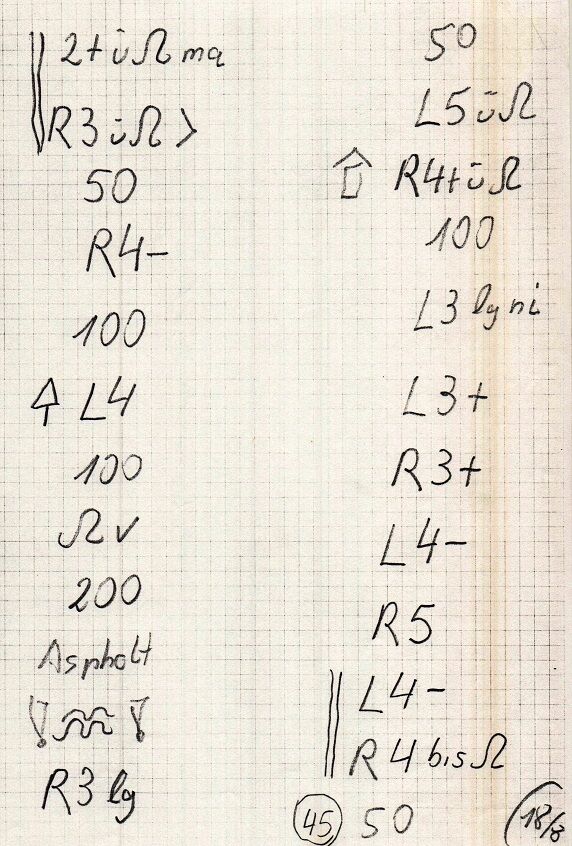 2+üΩ ma
R3üΩ >
50
R4-
100
L4
100
Ω v
200
Asphalt
!≈≈!
R3 lg
50
L5üΩ
R4+üΩ
100
L3 lg ni
L3+
R3+
L4-
R5
L4-
R4 bis Ω
45 50
18/8